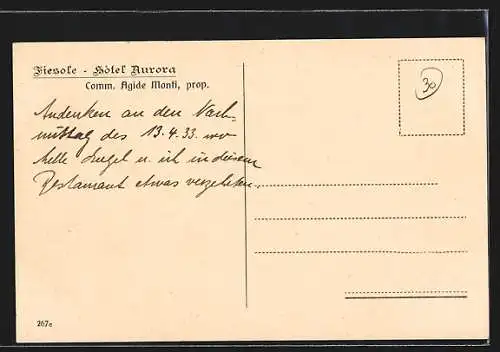 Fiesole - Hôtel Aurora
Comm. Agide Monti, prop.
30
Andenken an den Nach-
mittag des 13.4.33. wo
u. ich in diesem
Restaurant etwas verzehrten.
267c